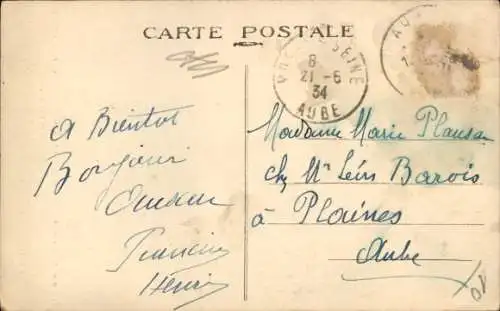 CARTE POSTALE
SEINE
8
21-6
34
AUBE
AU
A Bientôt
Bonjour
Francine
Henri
Madame Marie Plansan
chez Mr Léon Barois
à Plaines
Aube